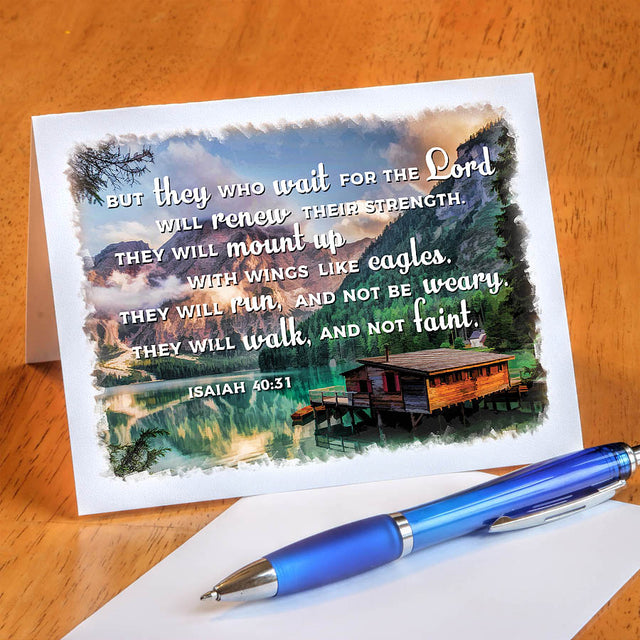 BUT they WHO wait FOR THE Lord
WILL renew THEIR STRENGTH.
THEY WILL mount up
WITH WINGS LIKE eagles.
THEY WILL run, AND NOT BE weary.
THEY WILL walk, AND NOT faint.
ISAIAH 40:31